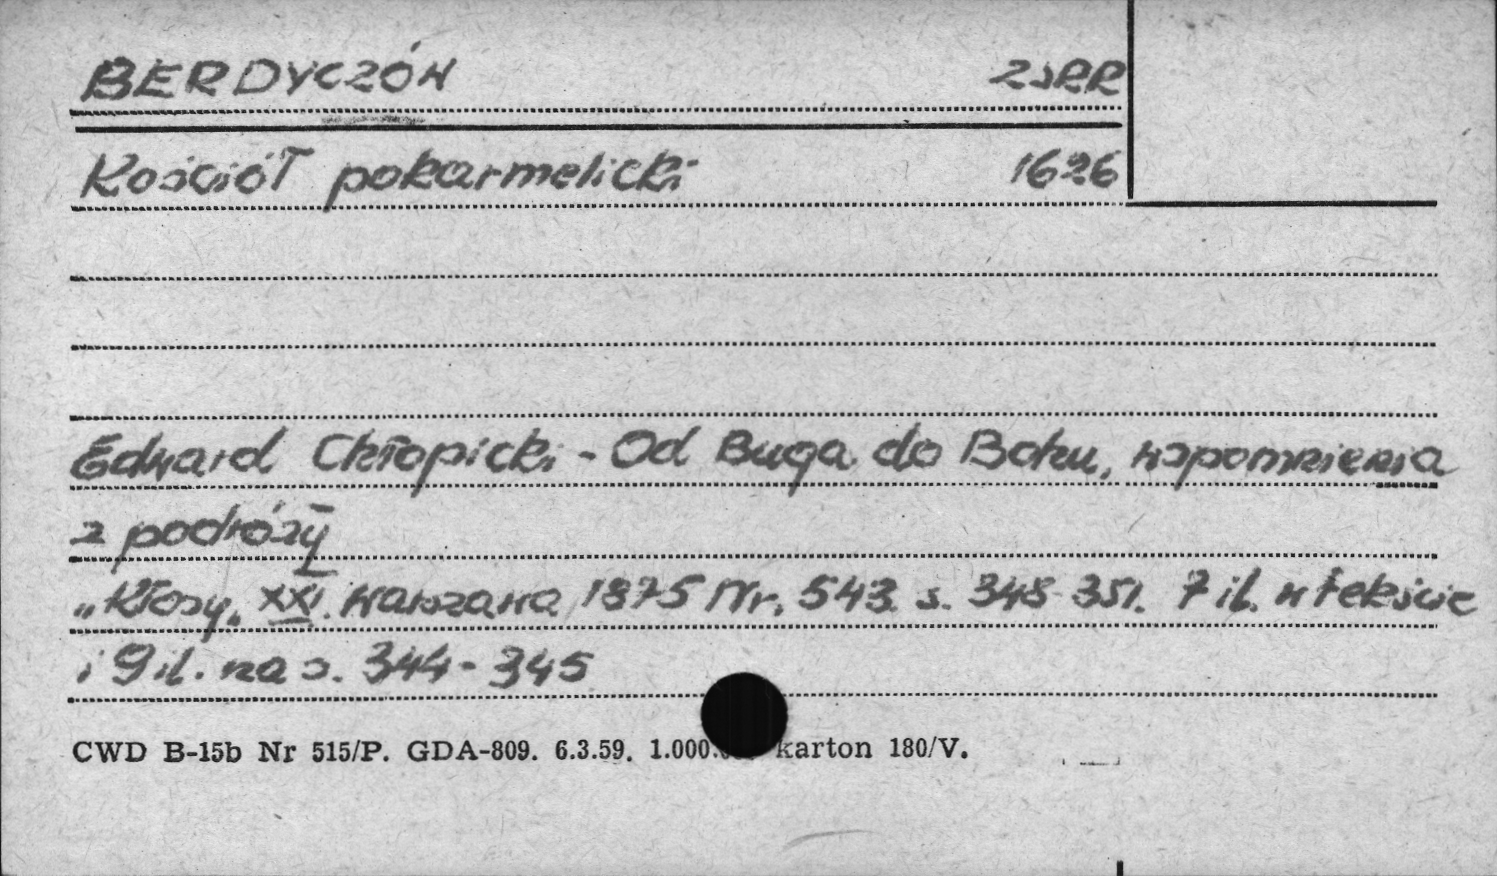 BERDYCZÓW ZSRR
Kościół pokarmelicki 1626
Edward Chłopicki - Od Buga do Bohu, wspomnienia
z podróży
„Kłosy„ XXI. Warszawa 1875 Nr. 543 s. 348-351. 7 il. w tekście
i 9 il. na s. 344-345
CWD B-15b Nr 515/P. GDA-809. 6.3.59. 1.000. karton 180/V.